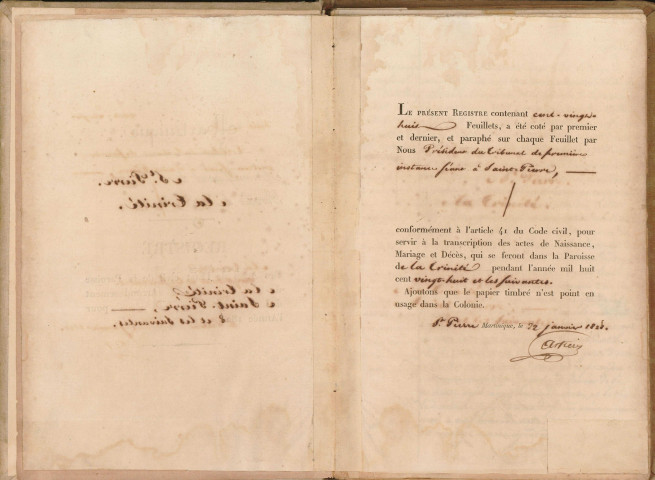 LE PRÉSENT REGISTRE contenant cent-vingt-
huit Feuillets, a été coté par premier
et dernier, et paraphé sur chaque Feuillet par
Nous Président du tribunal de première
instance séant à Saint-Pierre,
conformément à l'article 41 du Code civil, pour
servir à la transcription des actes de Naissance,
Mariage et Décès, qui se feront dans la Paroisse
de la Trinité pendant l'année mil huit
cent vingt-huit et les suivantes.
Ajoutons que le papier timbré n'est point en
usage dans la Colonie.
St. Pierre Martinique, le 22 janvier 1828.
à St. Pierre.
à la Trinité.
à la Trinité
à Saint-Pierre,
8 et les suivantes.